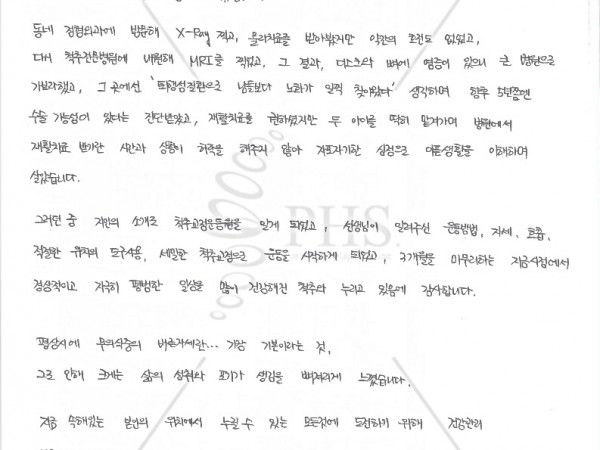 동네 정형외과에 방문해 X-Ray 찍고, 물리치료를 받아봤지만 약간의 호전도 없었고,
다시 척추전문병원에 내원해 MRI를 찍었고, 그 결과, 디스크와 뼈에 염증이 있으니 큰 병원으로
가보라했고, 그 곳에선 '퇴행성질환으로 남들보다 노화가 일찍 찾아왔다' 생각하며 향후 5년쯤엔
수술 가능성이 있다는 진단받았고, 재활치료를 권하셨지만 두 아이를 맡겨가며 병원에서
재활치료 받기란 시간과 상황이 허락을 해주지 않아 자포자기한 심정으로 이해하며
살았습니다.
그러던 중 지인의 소개로 척추교정운동원을 알게 되었고, 선생님이 알려주신 운동방법, 자세, 호흡,
적절한 위치의 도구사용, 세밀한 척추교정으로 운동을 시작하게 되었고, 3개월을 마무리하는 지금시점에서
정상적이고 지극히 평범한 일상을 많이 건강해진 척추와 누리고 있음에 감사합니다.
PHS
평상시에 무의식중의 바른자세란... 가장 기본이라는 것,
그로 인해 크게는 삶의 성취와 포기가 생김을 뼈저리게 느꼈습니다.
지금 속해있는 본인의 위치에서 누릴 수 있는 모든것에 도전하기 위해 건강관리